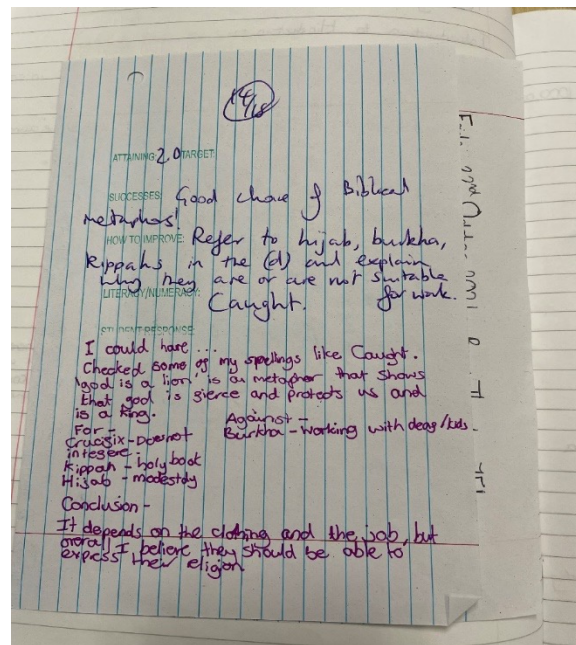 14/18
ATTAINING: 2.0 TARGET
SUCCESSES: Good choice of Biblical
metaphors!
HOW TO IMPROVE: Refer to hijab, burkha,
Kippahs in the (d) and explain
why they are or are not suitable
for work.
LITERACY/NUMERACY:
Caught.
STUDENT RESPONSE:
I could have...
Checked some of my spellings like Caught.
'god is a lion' is a metapher that shows
that god is fierce and protects us and
is a King.
For -
Crucifix - Doesnot
intefere.
Kippah - holy book
Hijab - modestdy
Against -
Burkha - Working with deag/kids
Conclusion -
It depends on the clothing and the job, but
overall I believe they should be able to
express their eligion